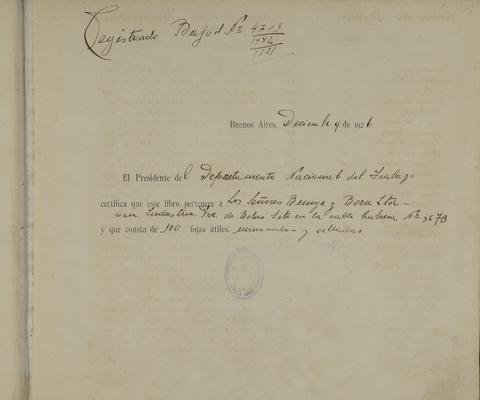 Registrado Bajo el Nº 4713
1721
Buenos Aires, Diciembre 9 de 1926
El Presidente del Departamento Nacional del Trabajo
certifica que este libro pertenece a Los Señores Bunge y Born Ltda
con Industria Fca. de Bolsas Sito en la calle Cabrera Nº 3673
y que consta de 100 fojas útiles, numeradas y selladas.